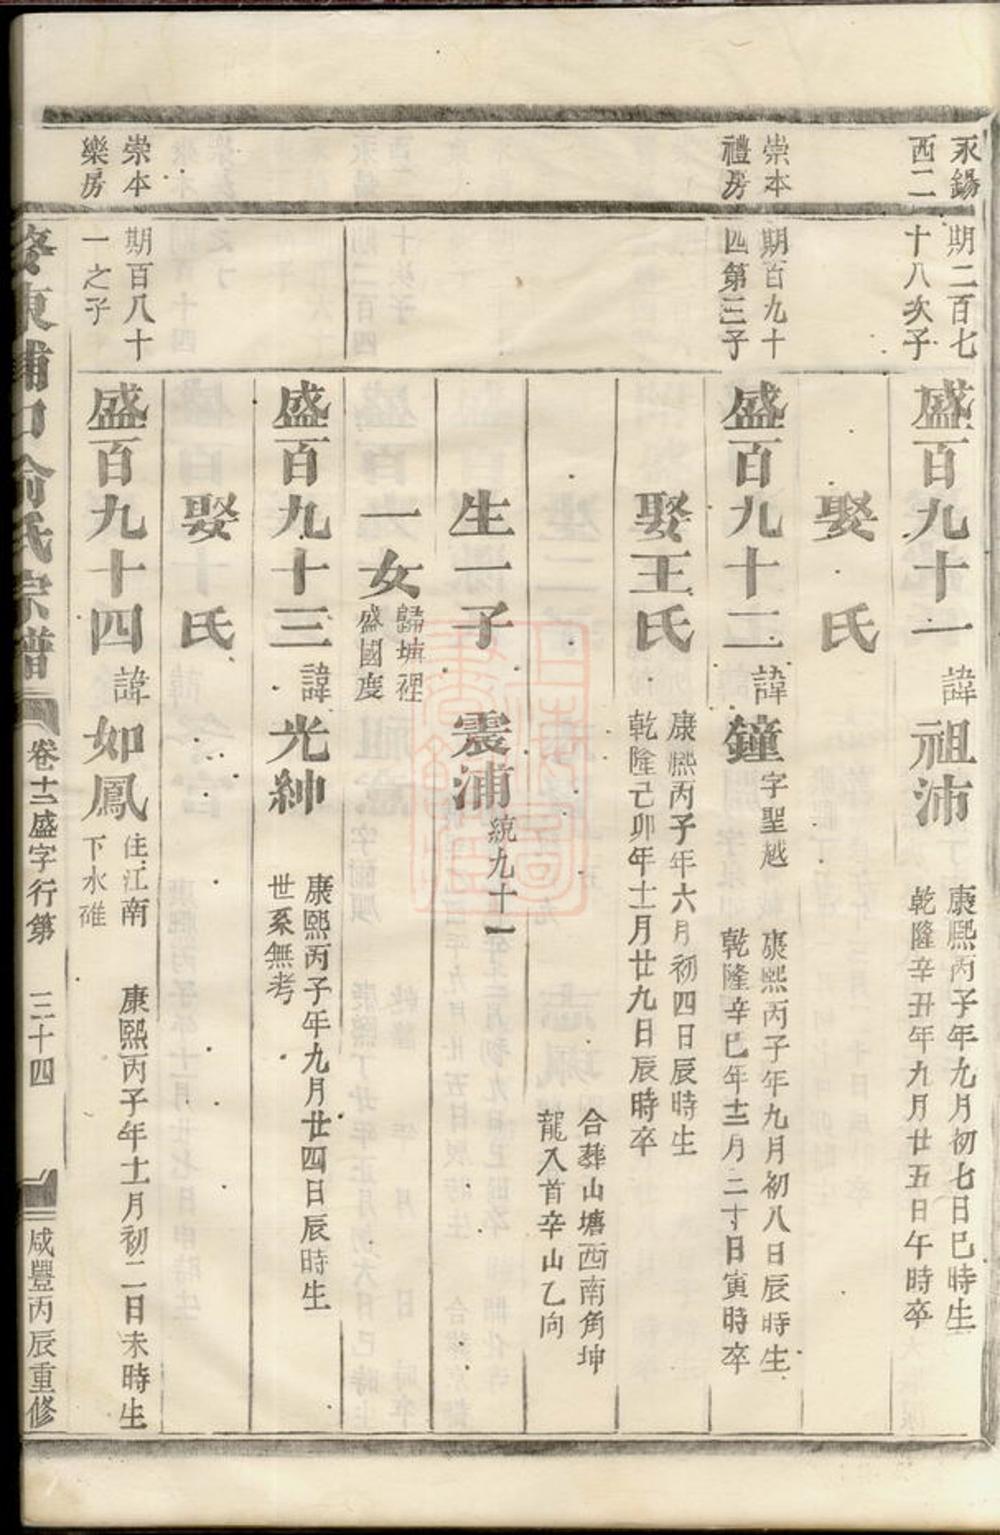 永錫
西二
期二百七
十八次子
盛百九十一
諱
祖沛
康熙丙子年九月初七日巳時生
乾隆辛丑年九月廿五日午時卒
娶　氏
崇本
禮房
期百九十
四第三子
盛百九十二
諱
鐘
字聖越
康熙丙子年九月初八日辰時生
乾隆辛巳年十二月二十日寅時卒
娶王氏
康熙丙子年六月初四日辰時生
乾隆己卯年十一月廿九日辰時卒
合葬山塘西南角坤
龍入首辛山乙向
生一子
震浦
統九十一
一女
歸塘裡
盛國慶
盛百九十三
諱
光紳
康熙丙子年九月廿四日辰時生
世系無考
娶　氏
崇本
樂房
期百八十
一之子
盛百九十四
諱
如鳳
住江南
下水碓
康熙丙子年十一月初二日未時生
東浦口俞氏宗譜
卷十二盛字行第
三十四
咸豐丙辰重修